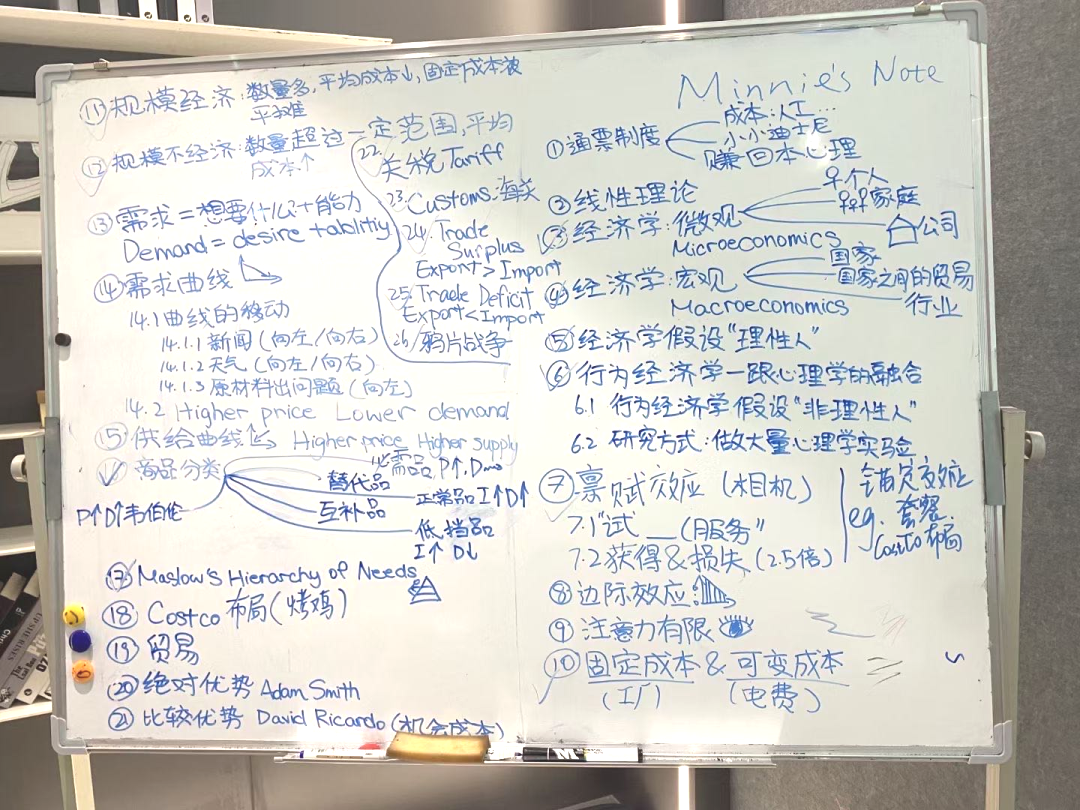 Minnie's Note
①通票制度
成本:人工...
小小迪士尼
赚回本心理
②线性理论
③经济学:微观
Microeconomics
个人
家庭
公司
④经济学:宏观
Macroeconomics
国家
国家之间的贸易
行业
⑤经济学假设"理性人"
⑥行为经济学—跟心理学的融合
6.1 行为经济学假设"非理性人"
6.2 研究方式:做大量心理学实验
⑦禀赋效应(相机)
7.1"试__(服务"
7.2获得&损失(2.5倍)
锚定效应
eg. 套餐
Costco布局
⑧边际效应:
⑨注意力有限
⑩固定成本&可变成本
(工厂)
(电费)
⑪规模经济:数量多,平均成本↓,固定成本被
平摊
⑫规模不经济:数量超过一定范围,平均
成本↑
⑬需求=想要什么+能力
Demand=desire+ablitiy
⑭需求曲线
14.1曲线的移动
14.1.1 新闻(向左/向右)
14.1.2天气(向左/向右)
14.1.3原材料出问题(向左)
14.2 Higher price Lower demand
⑮供给曲线 Higher price, Higher supply
商品分类
必需品,P↑,D
替代品
正常品I↑D↑
互补品
低挡品
I↑ D↓
P↑D↑韦伯伦
⑰Maslow's Hierarchy of Needs
⑱Costco布局(烤鸡)
⑲贸易
⑳绝对优势 Adam Smith
㉑比较优势 David Ricardo(机会成本)
22.
关税Tariff
23.Customs.海关
24. Trade
Surplus
Export>Import
25. Trade Deficit
Export<Import
26.鸦片战争